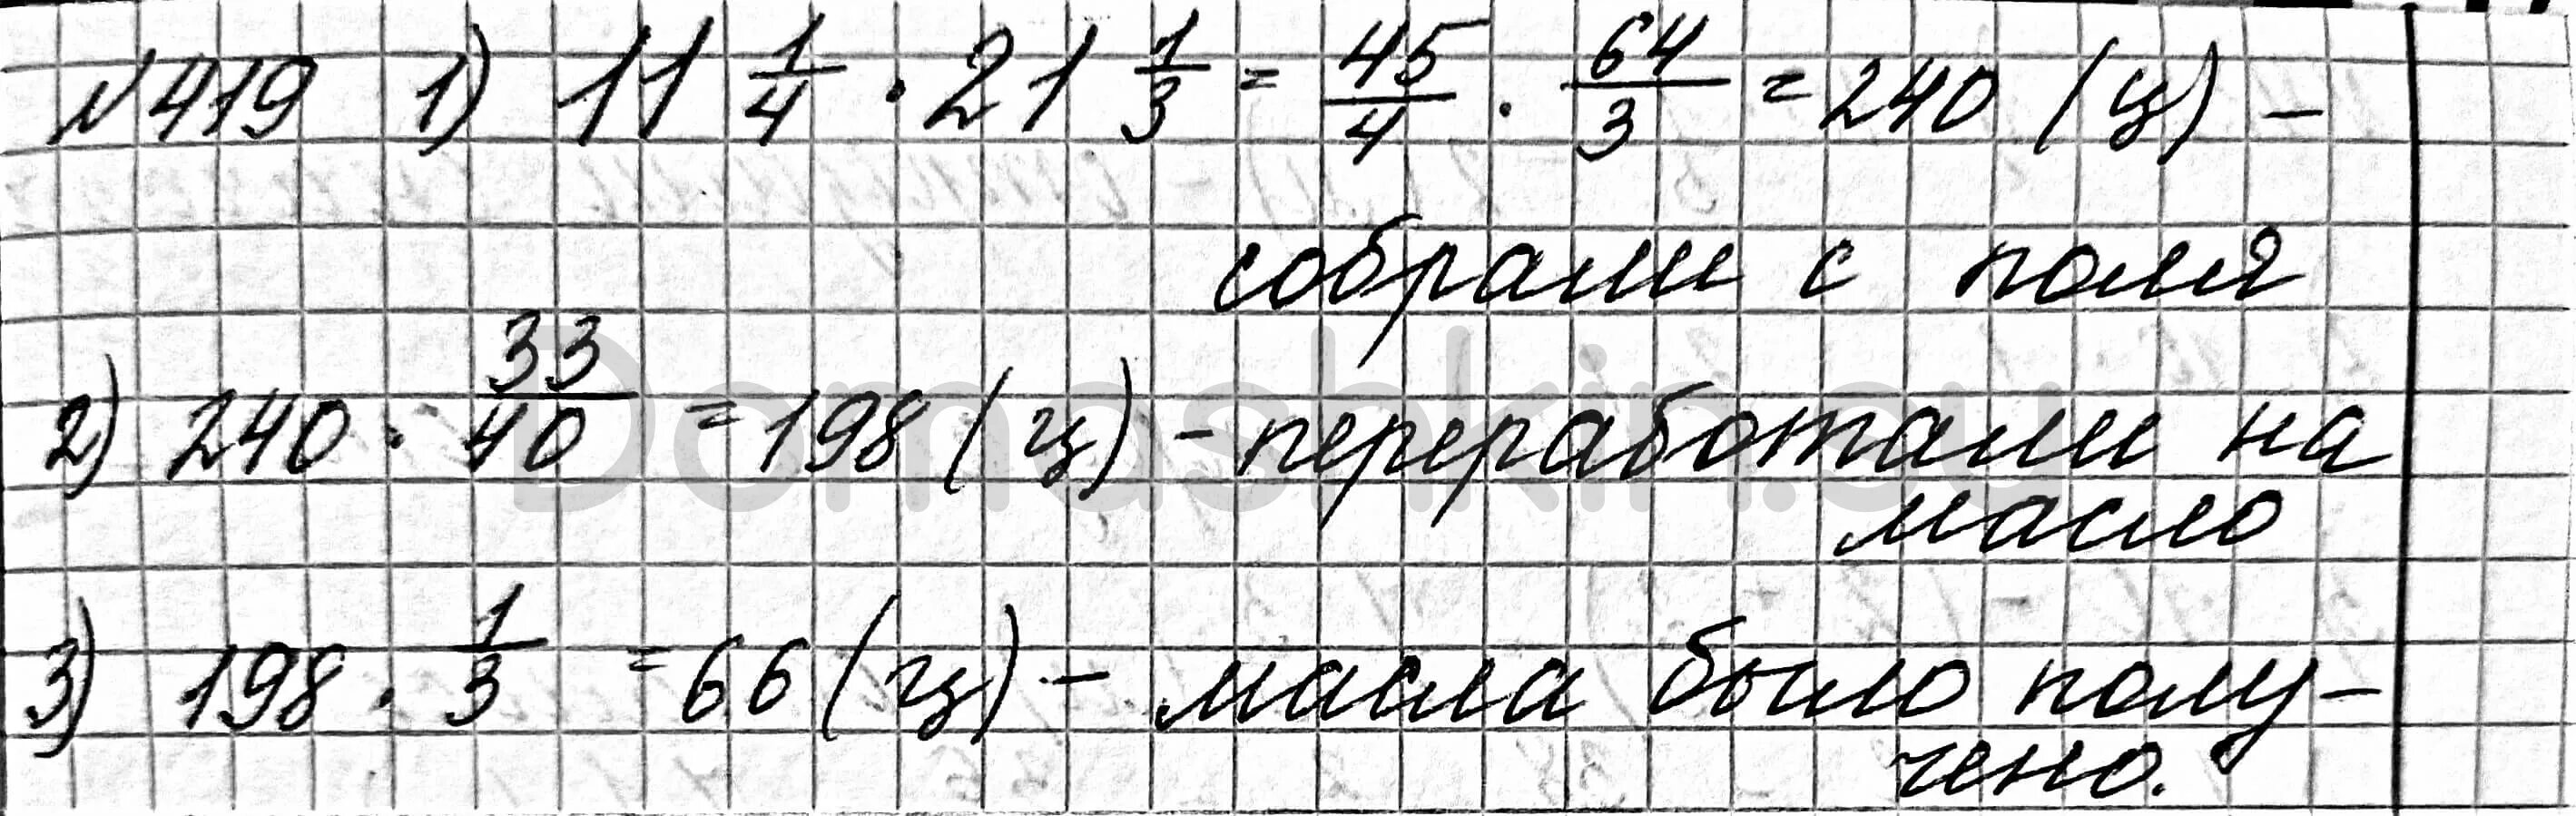 №419 1) 11 1/4 · 21 1/3 = 45/4 · 64/3 = 240 (ц) –
собрали с поля
2) 240 · 33/40 = 198 (ц) – переработали на
масло
3) 198 · 1/3 = 66 (ц) – масла было полу-
чено.
Domashkin.su